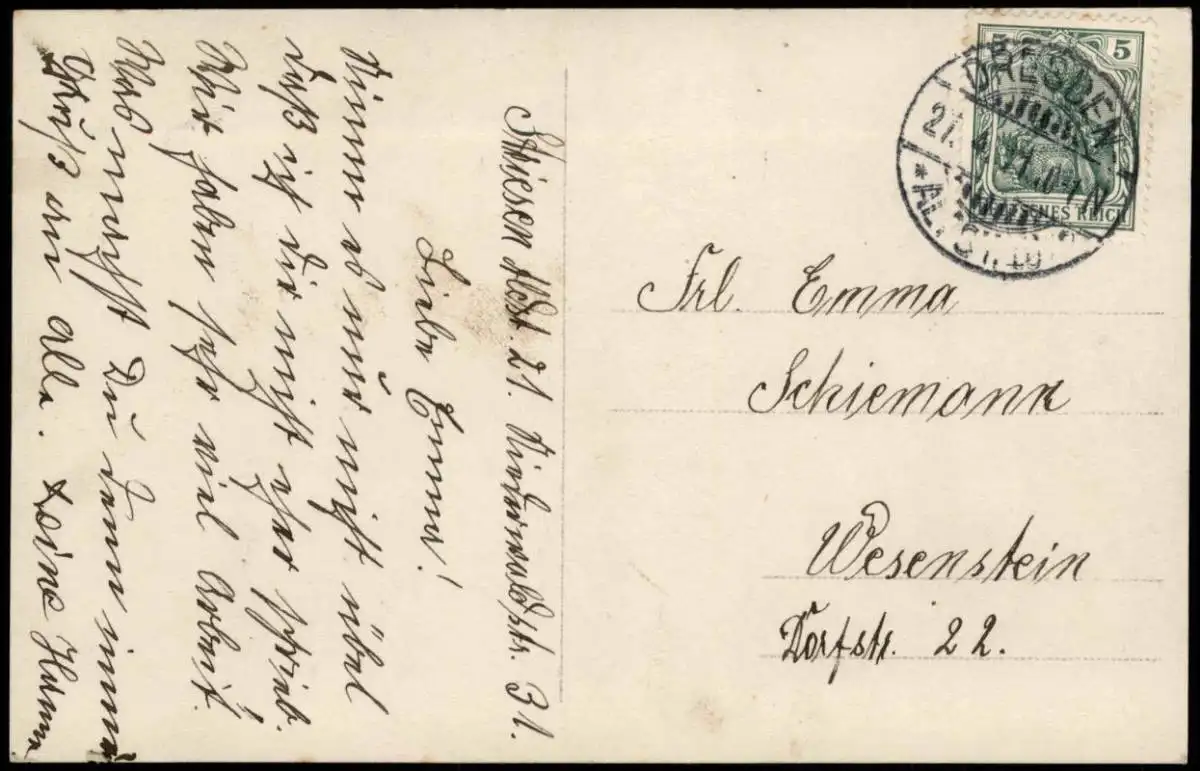 Striesen Altst. 21. Niederwaldstr. 31.
Liebe Emma!
Nimm es nur nicht übel
daß ich dir nicht eher schrieb.
Wir haben sehr viel Arbeit.
Was machst Du denn immer
Gruß an alle. Deine
5 5
DEUTSCHES REICH
DRESDEN
27. 11. 1 N
* ALTST. 16
Frl. Emma
Schiemann
Wesenstein
Dorfstr. 22.